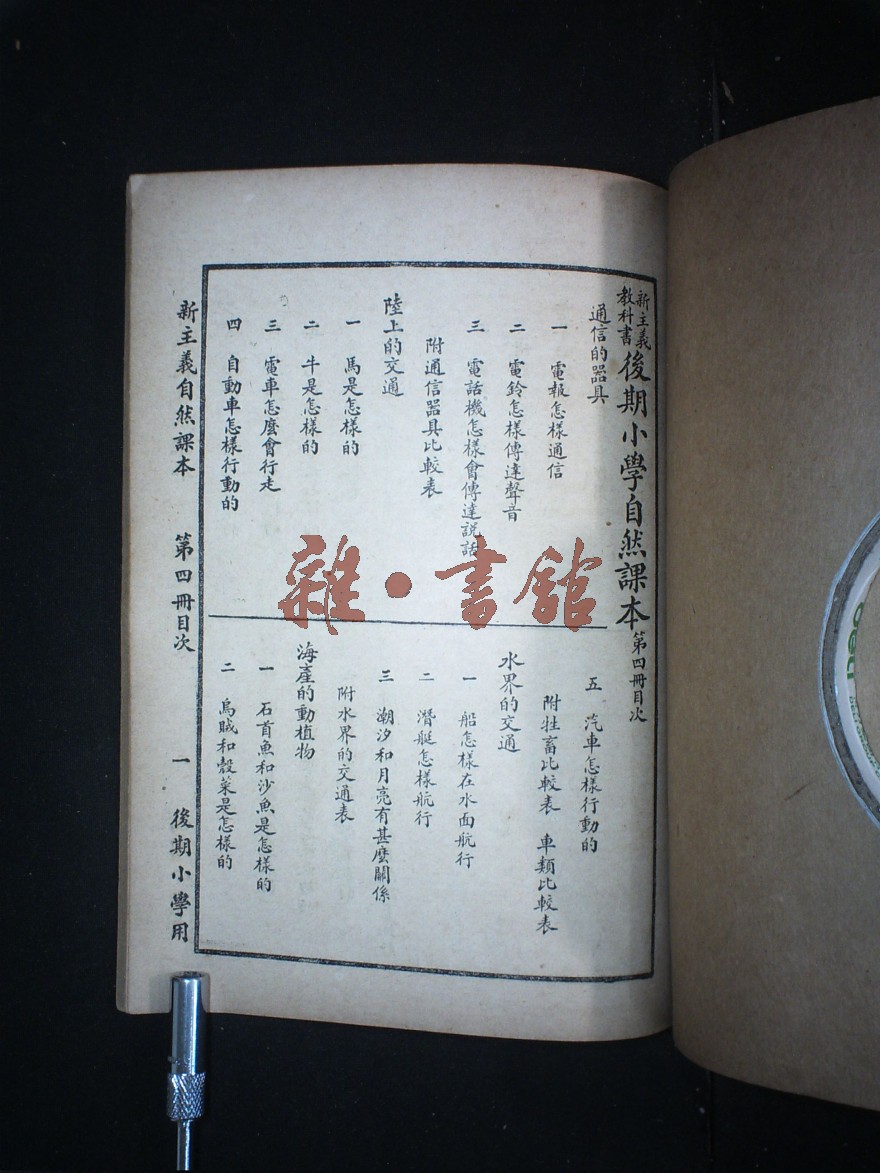 新主義
教科書
後期小學自然課本
第四冊目次
通信的器具
一 電報怎樣通信
二 電鈴怎樣傳達聲音
三 電話機怎樣會傳達說話
附通信器具比較表
陸上的交通
一 馬是怎樣的
二 牛是怎樣的
三 電車怎麼會行走
四 自動車怎樣行動的
五 汽車怎樣行動的
附牲畜比較表 車類比較表
水界的交通
一 船怎樣在水面航行
二 潛艇怎樣航行
三 潮汐和月亮有甚麼關係
附水界的交通表
海產的動植物
一 石首魚和沙魚是怎樣的
二 烏賊和殼菜是怎樣的
新主義自然課本 第四冊目次 一 後期小學用
雜·書館
deli